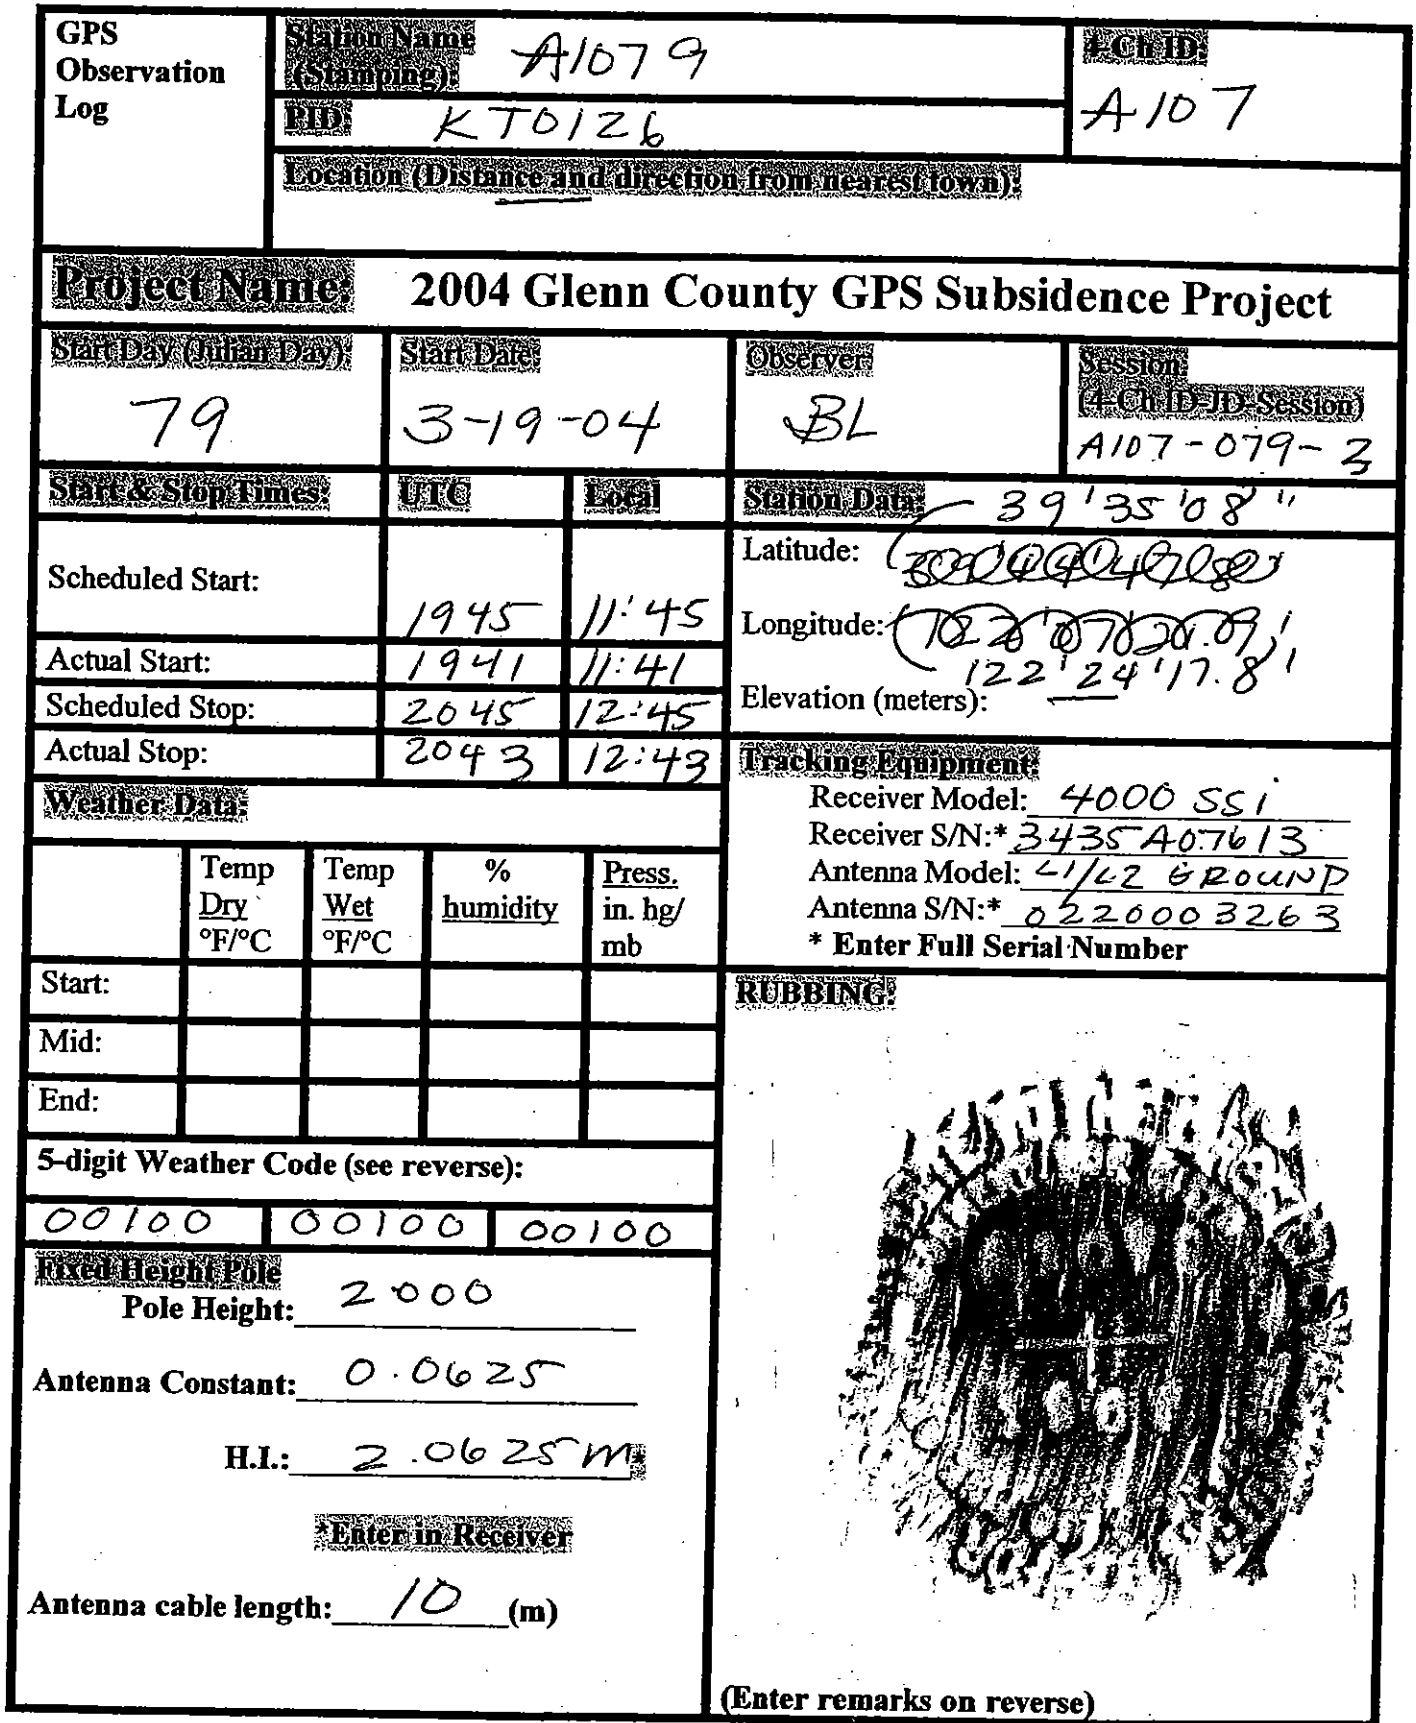 GPS
Observation
Log
Station Name
(Stamping): A1079
PID: KT0126
4-Ch ID:
A107
Location (Distance and direction from nearest town):
Project Name: 2004 Glenn County GPS Subsidence Project
Start Day (Julian Day):
79
Start Date:
3-19-04
Observer:
BL
Session:
(4-Ch ID-JD-Session)
A107-079-3
Start & Stop Times: UTC Local
Scheduled Start: 1945 11:45
Actual Start: 1941 11:41
Scheduled Stop: 2045 12:45
Actual Stop: 2043 12:43
Station Data: 39'35'08"
Latitude:
Longitude:
122'24'17.8'
Elevation (meters):
Tracking Equipment:
Receiver Model: 4000 SSi
Receiver S/N:* 3435A07613
Antenna Model: L1/L2 GROUND
Antenna S/N:* 0220003263
* Enter Full Serial Number
Weather Data:
Temp Dry °F/°C
Temp Wet °F/°C
% humidity
Press. in. hg/ mb
Start:
Mid:
End:
5-digit Weather Code (see reverse):
00100 00100 00100
Fixed Height Pole
Pole Height: 2.000
Antenna Constant: 0.0625
H.I.: 2.0625 m*
*Enter in Receiver
Antenna cable length: 10 (m)
RUBBING:
(Enter remarks on reverse)